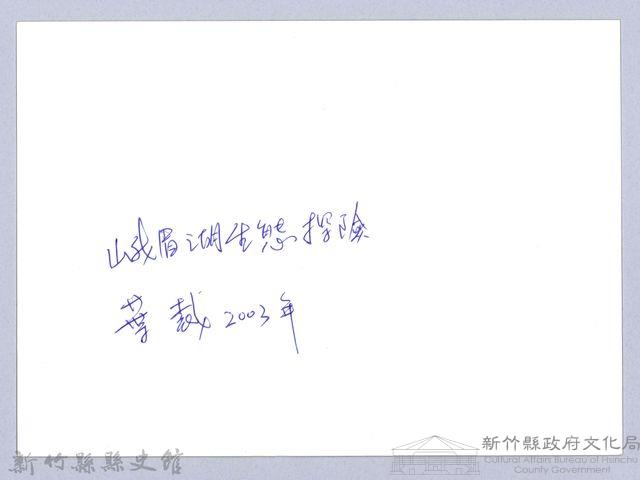 峨眉湖生態探險
葉裁 2003年
新竹縣縣史館
新竹縣政府文化局
Cultural Affairs Bureau of Hsinchu
County Government